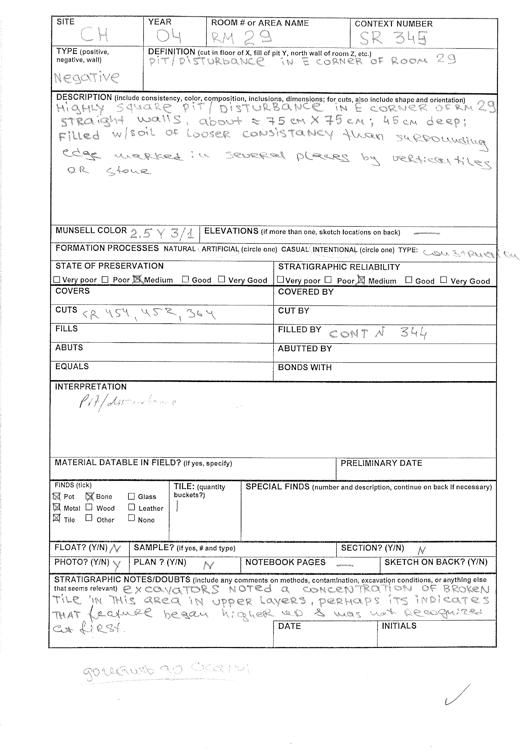 SITE YEAR ROOM # or AREA NAME CONTEXT NUMBER
CH 04 RM 29 SR 345
TYPE (positive, negative, wall) DEFINITION (cut in floor of X, fill of pit Y, north wall of room Z, etc.)
Negative PIT/DISTURBANCE IN E CORNER OF ROOM 29
DESCRIPTION (include consistency, color, composition, inclusions, dimensions; for cuts, also include shape and orientation)
HIGHLY SQUARE PIT/DISTURBANCE IN E CORNER OF RM 29
STRAIGHT WALLS, about ≈ 75 cm X 75 cm; 45 cm deep;
Filled w/soil of looser consistancy than surrounding
edge marked in several places by vertical tiles
OR stone
MUNSELL COLOR 2.5 Y 3/1 ELEVATIONS (if more than one, sketch locations on back) —
FORMATION PROCESSES NATURAL - ARTIFICIAL (circle one) CASUAL INTENTIONAL (circle one) TYPE: construction
STATE OF PRESERVATION STRATIGRAPHIC RELIABILITY
☐ Very poor ☐ Poor ☒ Medium ☐ Good ☐ Very Good ☐ Very poor ☐ Poor ☒ Medium ☐ Good ☐ Very Good
COVERS COVERED BY
CUTS SR 454, 452, 364 CUT BY
FILLS FILLED BY CONT N 344
ABUTS ABUTTED BY
EQUALS BONDS WITH
INTERPRETATION
Pit/disturbance
MATERIAL DATABLE IN FIELD? (if yes, specify) PRELIMINARY DATE
FINDS (tick) TILE: (quantity buckets?) SPECIAL FINDS (number and description, continue on back if necessary)
☒ Pot ☒ Bone ☐ Glass 1
☒ Metal ☐ Wood ☐ Leather
☒ Tile ☐ Other ☐ None
FLOAT? (Y/N) N SAMPLE? (if yes, # and type) SECTION? (Y/N) N
PHOTO? (Y/N) Y PLAN ? (Y/N) N NOTEBOOK PAGES — SKETCH ON BACK? (Y/N)
STRATIGRAPHIC NOTES/DOUBTS (include any comments on methods, contamination, excavation conditions, or anything else
that seems relevant) EXCAVATORS NOTED A CONCENTRATION OF BROKEN
TILE IN THIS AREA IN UPPER LAYERS, PERHAPS ITS INDICATES
THAT feature began higher up & was not recognized
at first.
DATE INITIALS